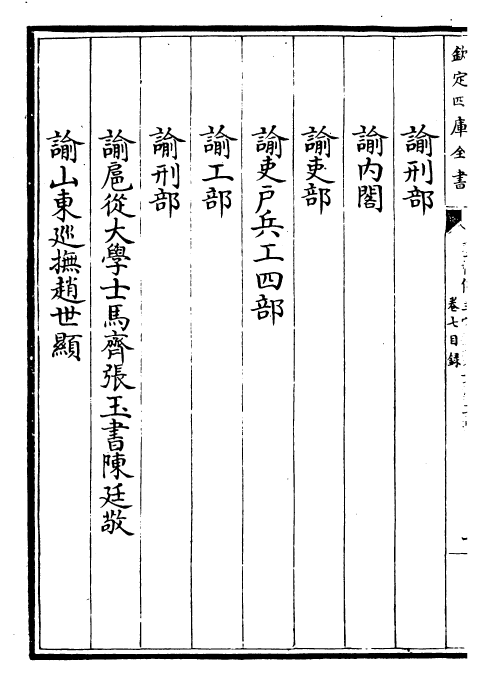 欽定四庫全書
卷七目錄
諭刑部
諭內閣
諭吏部
諭吏戶兵工四部
諭工部
諭刑部
諭扈從大學士馬齊張玉書陳廷敬
諭山東巡撫趙世顯